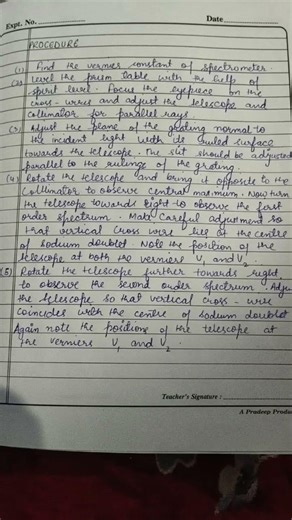 Expt. No. Date
PROCEDURE
(1) Find the vernier constant of spectrometer.
(2) Level the prism table with the help of
spirit level. Focus the eyepiece on the
cross-wires and adjust the telescope and
collimator for parallel rays
(3) Adjust the plane of the grating normal to
the incident light with its ruled surface
towards the telescope. The slit should be adjusted
parallel to the rulings of the grating.
(4) Rotate the telescope and bring it opposite to the
collimator to observe central maximum. Now turn
the telescope towards Right to observe the first
order spectrum. Make Careful adjustment so
that vertical Cross wire lies at the centre
of sodium doublet. Note the position of the
telescope at both the verniers V1 and V2.
(5) Rotate the telescope further towards right
to observe the second order spectrum. Adju
the telescope so that vertical cross-wire
coincides with the centre of sodium doublet
Again note the positions of the telescope at
the verniers V1 and V2.
Teacher's Signature :
A Pradeep Produ